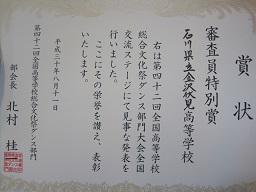 賞状
審査員特別賞
石川県立金沢伏見高等学校
右は第四十二回全国高等学校
総合文化祭ダンス部門大会全国
交流ステージにて見事な発表を
行いました。
ここにその栄誉を讃え、表彰
いたします。
平成三十年八月十一日
第四十二回全国高等学校総合文化祭ダンス部門
部会長 北村 桂